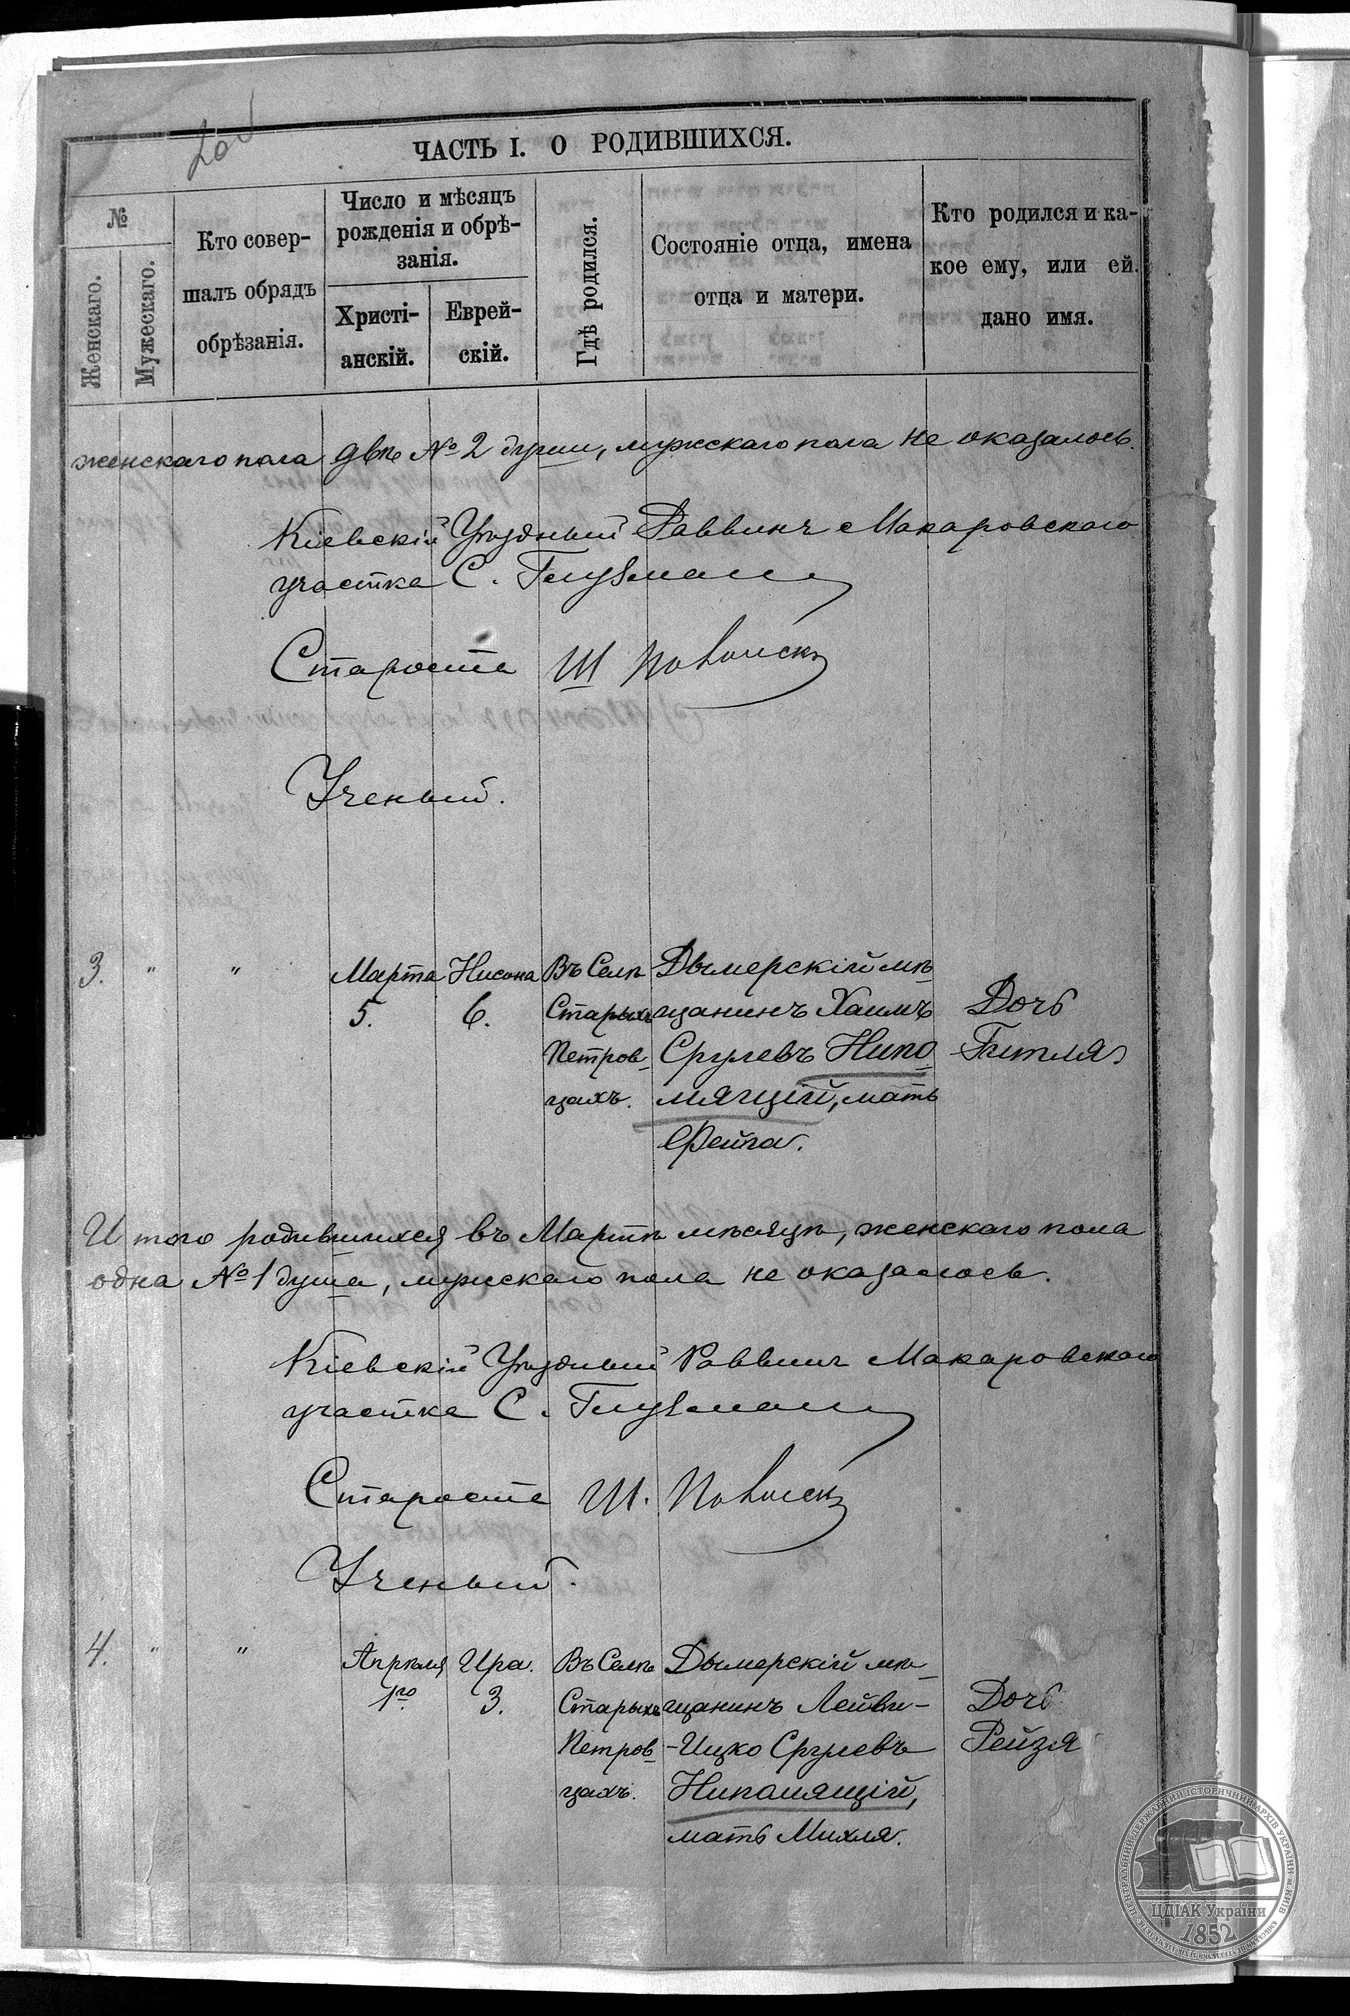 ЧАСТЬ I. О РОДИВШИХСЯ.
№
Женскаго.
Мужескаго.
Кто совер-
шалъ обрядъ
обрѣзанія.
Число и мѣсяцъ
рожденія и обрѣ-
занія.
Христі-
анскій.
Еврей-
скій.
Гдѣ родился.
Состояніе отца, имена
отца и матери.
Кто родился и ка-
кое ему, или ей.
дано имя.
женскаго пола двѣ № 2 души, мужскаго пола не оказалось.
Кіевскій Уѣздный Раввинъ Макаровскаго
участка С. Глузман
Староста Ш
Ученый.
3. " "
Марта
5.
Нисона
6.
Въ Селѣ
Старыхъ
Петров-
цахъ.
Дымерскій мѣ-
щанинъ Хаимъ
Срулевъ Нипо-
мящій, мать
Фейга.
Дочь
Гитля
И того родившихся въ Мартѣ мѣсяцѣ, женскаго пола
одна № 1 душа, мужскаго пола не оказалось.
Кіевскій Уѣздный Раввинъ Макаровскаго
участка С. Глузман
Староста Ш.
Ученый.
4. " "
Апрѣля
1го
Ира.
3.
Въ Селѣ
Старыхъ
Петров-
цахъ.
Дымерскій мѣ-
щанинъ Лейви-
-Ицко Срулевъ
Нипомящій,
мать Михля.
Дочь
Рейзя
ЦЕНТРАЛЬНИЙ ДЕРЖАВНИЙ ІСТОРИЧНИЙ АРХІВ УКРАЇНИ м. КИЇВ
ЦДІАК України
1852